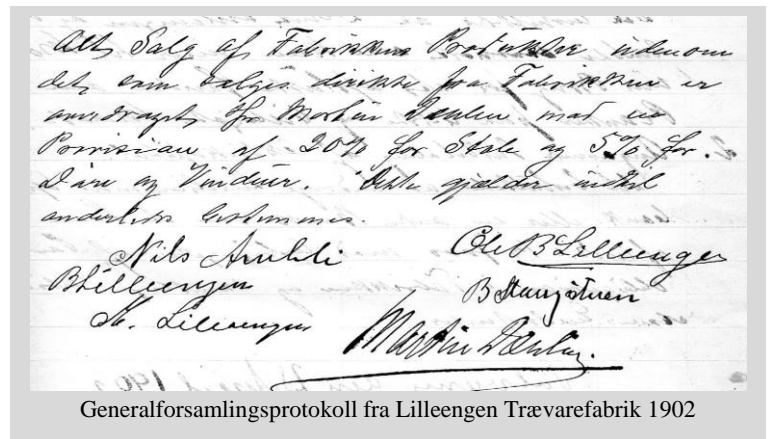 Alt Salg af Fabrikkens Produkter udenom
det, som sælges direkte fra Fabrikken er
overdraget Hr Martin Dæhlin mod en
Provision af 20% for Stole og 5% for
Døre og Vinduer. Dette gjælder indtil
anderledes bestemmes.
Nils Ole B Lilleengen
B Lilleengen B
M. Lilleengen
Martin Dæhlin.
Generalforsamlingsprotokoll fra Lilleengen Trævarefabrik 1902